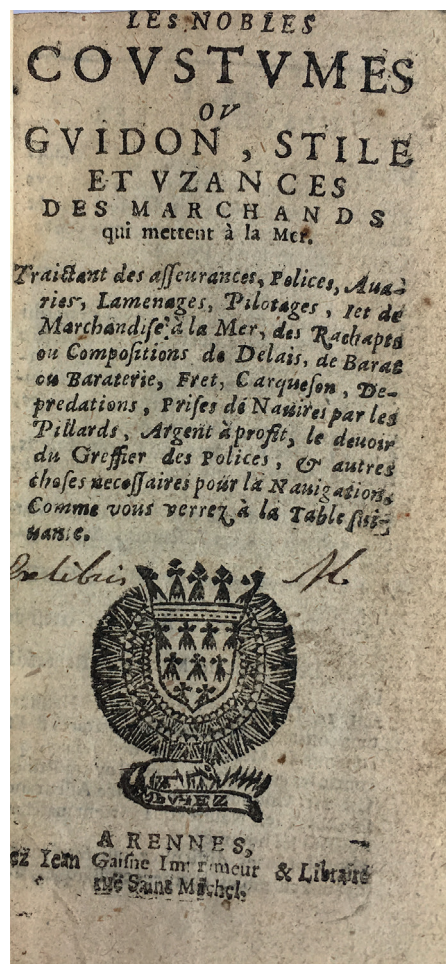 LES NOBLES
COVSTVMES
OV
GVIDON, STILE
ET VZANCES
DES MARCHANDS
qui mettent à la Mer.
Traictant des asseurances, Polices, Aua-
ries, Lamenages, Pilotages, Iet de
Marchandise à la Mer, des Rachapts
ou Compositions de Delais, de Barat
ou Baraterie, Fret, Carqueson, De-
predations, Prises de Nauires par les
Pillards, Argent à profit, le deuoir
du Greffier des Polices, & autres
choses necessaires pour la Nauigation,
Comme vous verrez à la Table sui-
uante.
Ex libris
A RENNES,
ez Iean Gaisne Imprimeur & Libraire
ruë Saint Michel.